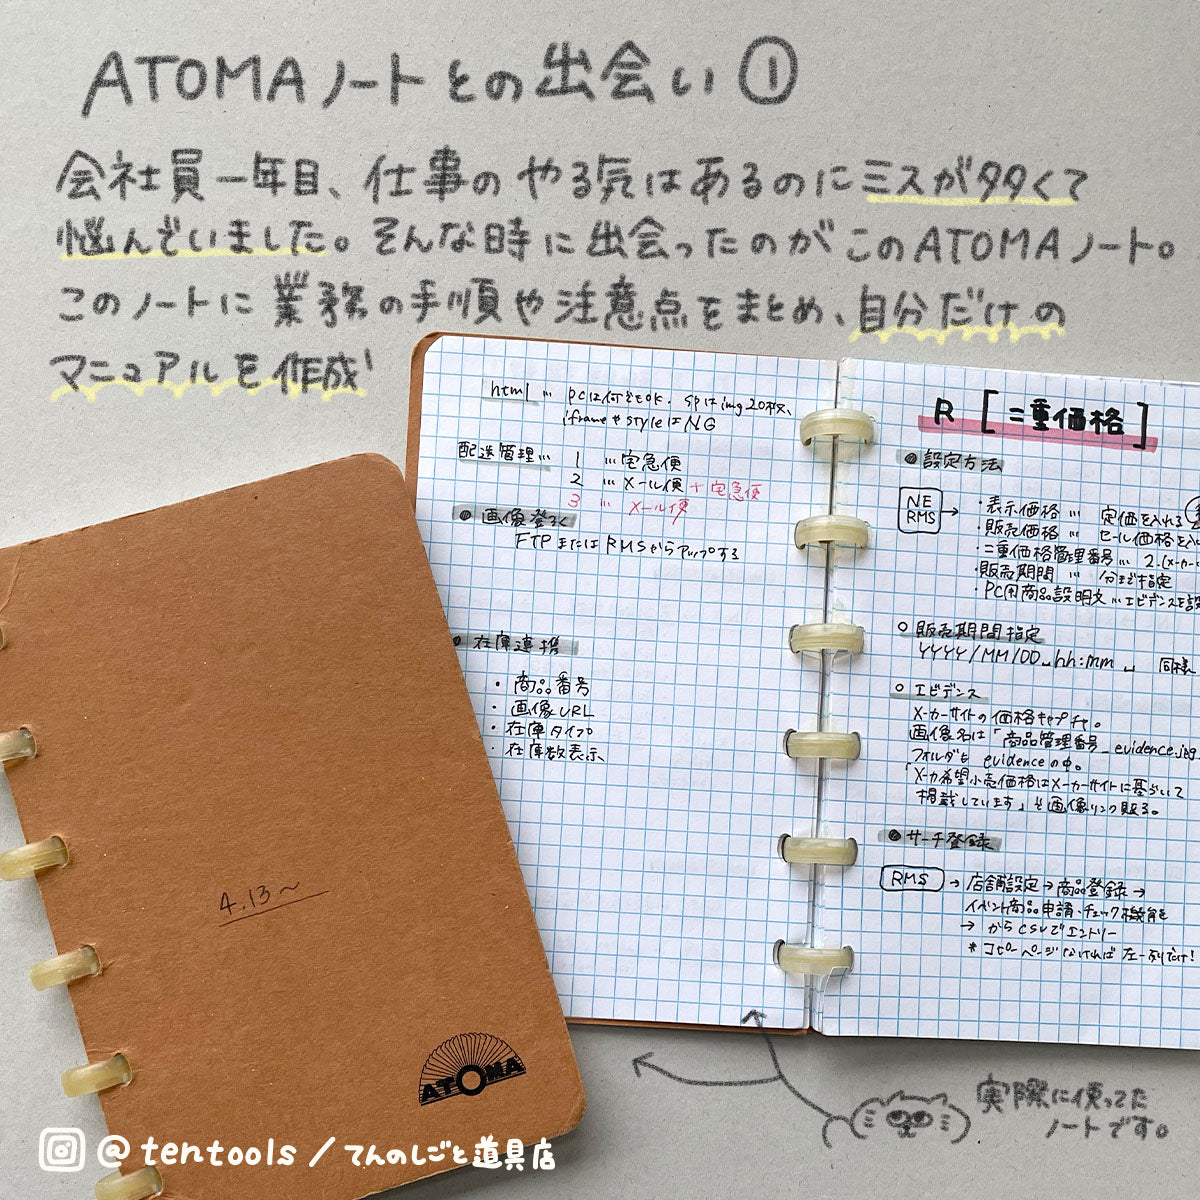 ATOMAノートとの出会い①
会社員一年目、仕事のやる気はあるのにミスが多くて
悩んでいました。そんな時に出会ったのがこのATOMAノート。
このノートに業務の手順や注意点をまとめ、自分だけの
マニュアルを作成!
html … PCは何でもOK. SPはimg20枚、
iframeやstyleはNG
配送管理… 1 …宅急便
2 …メール便+宅急便
3 … メール便
●画像登ろく
FTPまたはRMSからアップする
●在庫連携
・商品番号
・画像URL
・在庫タイプ
・在庫数表示
R [二重価格]
●設定方法
NE
RMS
→
・表示価格 … 定価を入れる
・販売価格 … セール価格を入
・二重価格管理番号 … 2.(メーカー
・販売期間 … 分まで指定
・PC用商品説明文 … エビデンスを設
○ 販売期間指定
YYYY/MM/DD␣hh:mm␣ 同様
○ エビデンス
メーカーサイトの価格キャプチャ。
画像名は「商品管理番号_evidence.jpg
フォルダも evidenceの中。
「メーカ希望小売価格はメーカーサイトに基づいて
掲載しています」と画像リンク貼る。
●サーチ登録
RMS → 店舗設定→商品登録→
イベント商品申請、チェック機能を
→ からCSVでエントリー
*コピーページなければ左一列だけ!
4.13〜
ATOMA
実際に使ってた
ノートです。
@tentools/てんのしごと道具店